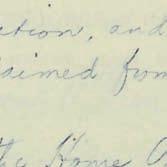 ction, and
aimed from
the Home